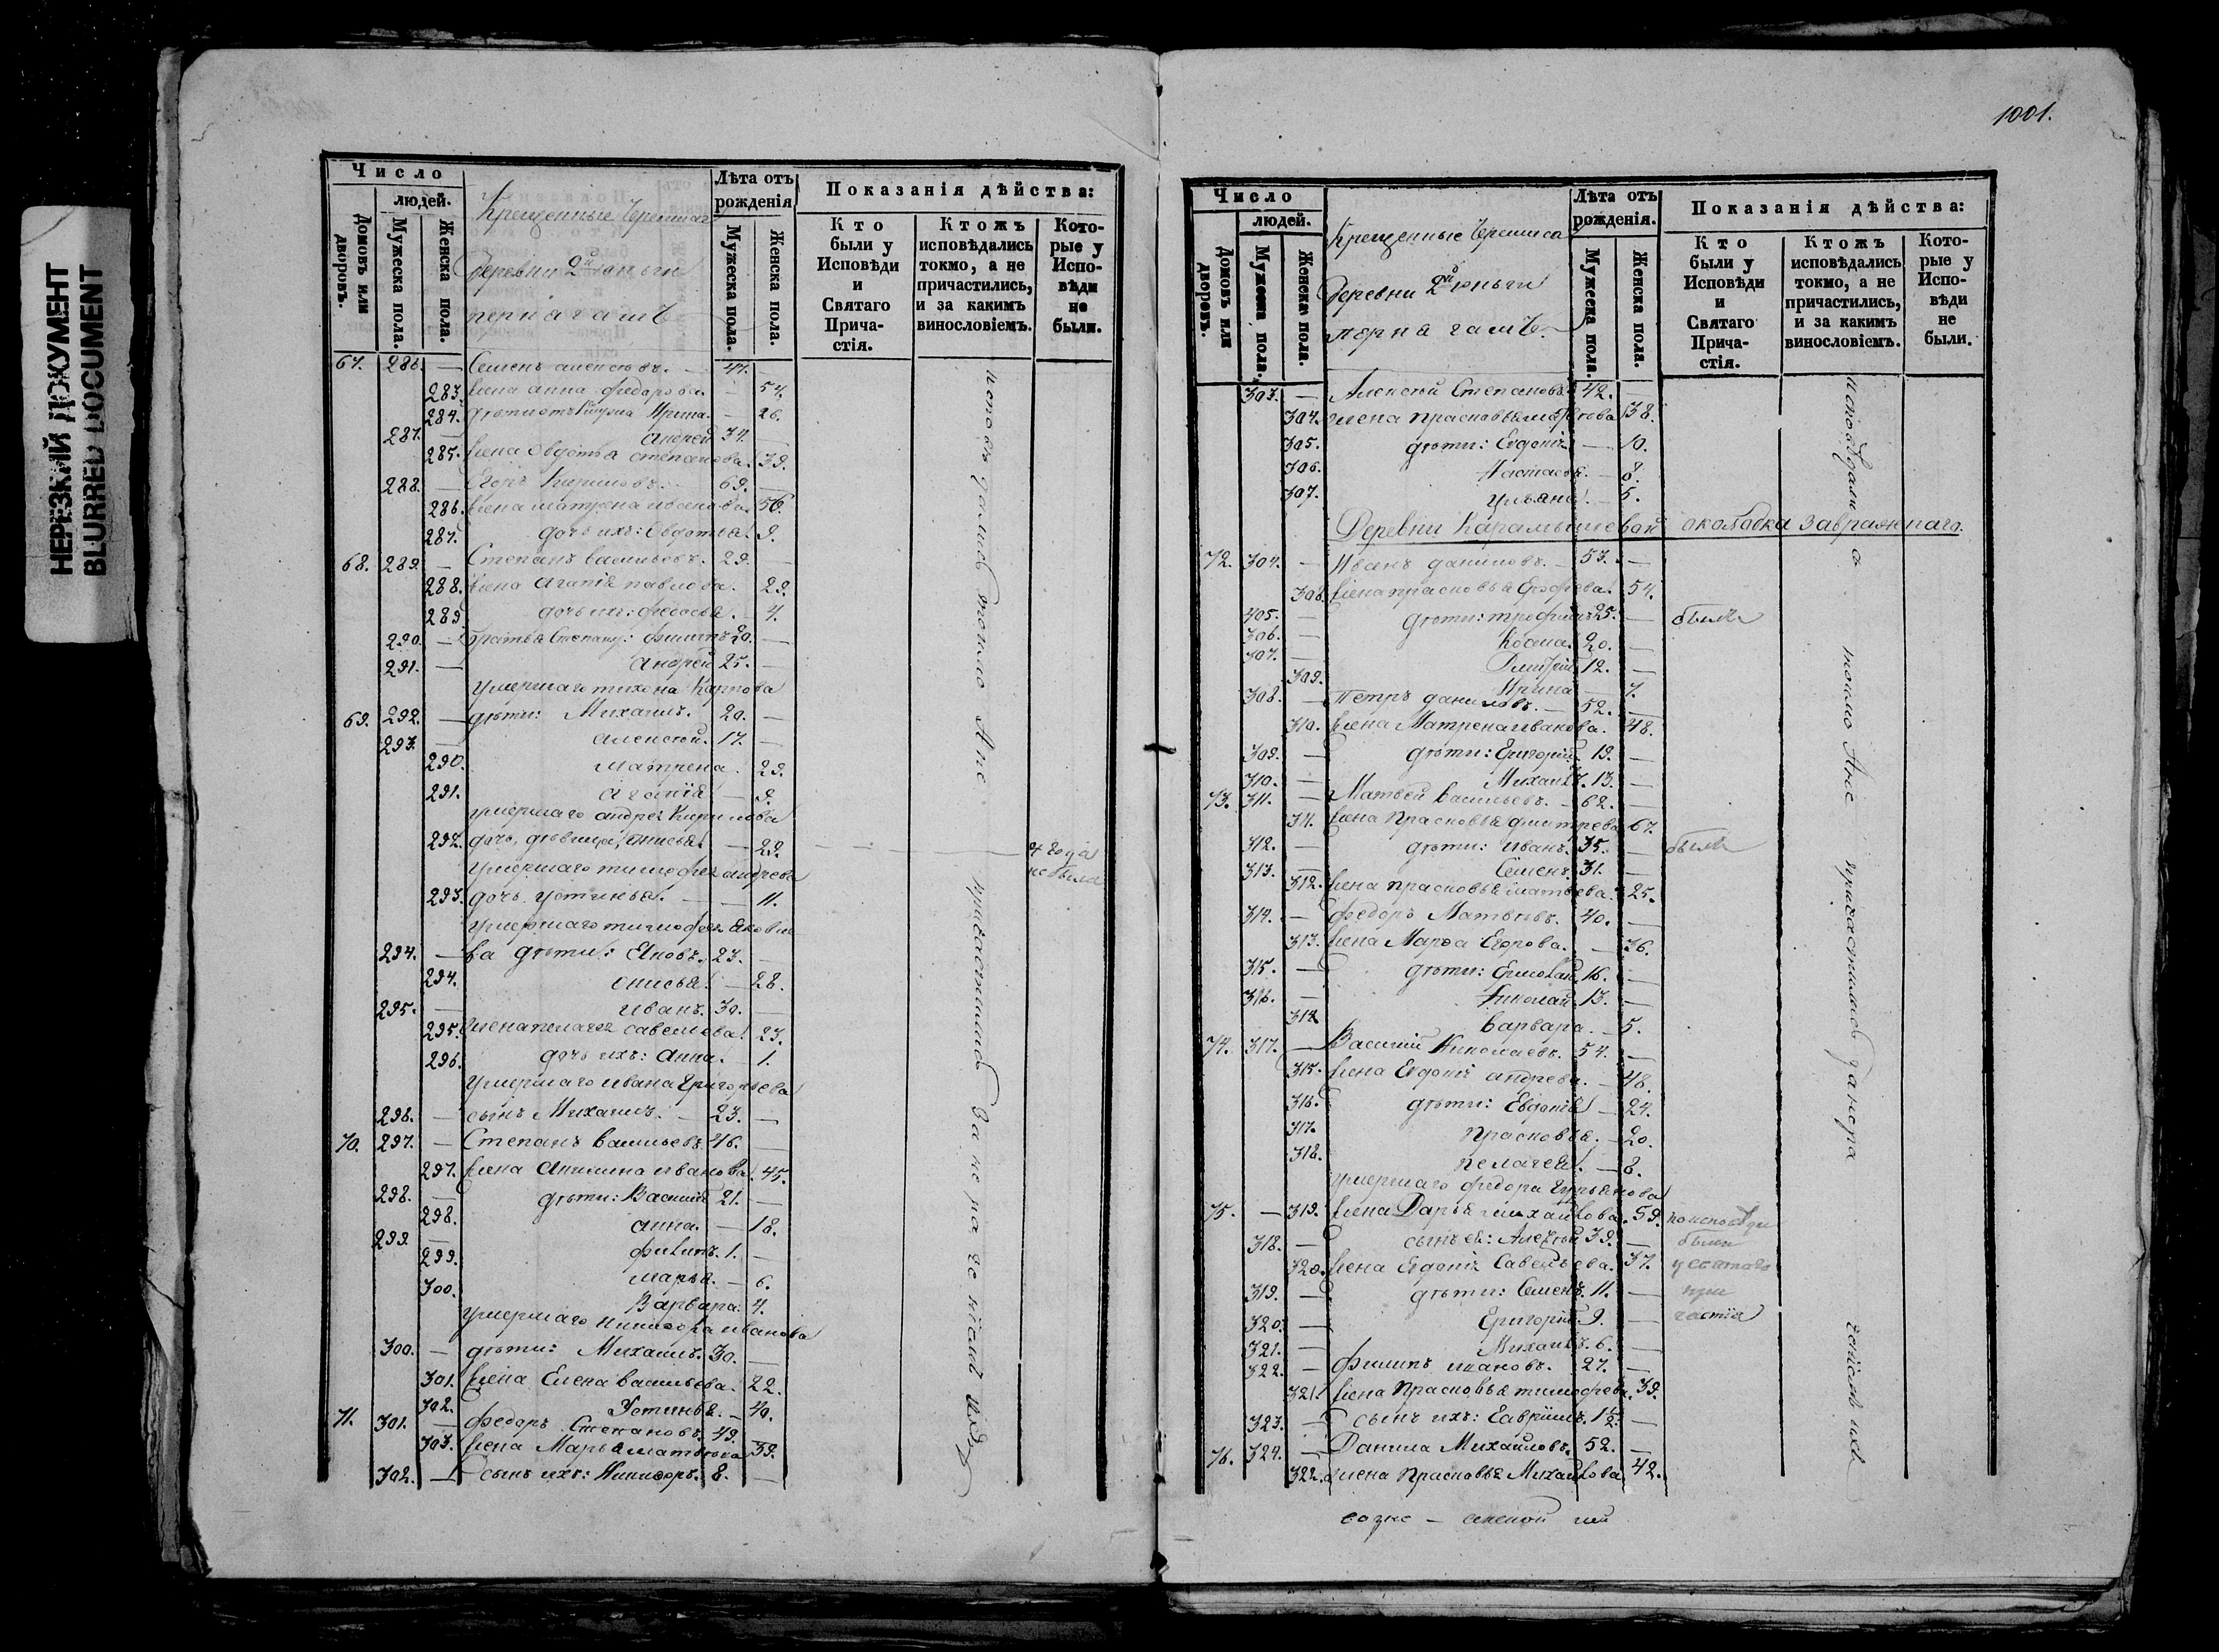 НЕРЕЗКИЙ ДОКУМЕНТ
BLURRED DOCUMENT
Число
людей.
Домовъ или дворовъ.
Мужеска пола.
Женска пола.
Крещенные Черемиса
Деревни 2й Юнъги
пернагашъ
Лѣта отъ рожденія
Мужеска пола.
Женска пола.
Показанія дѣйства:
Кто были у Исповѣди и Святаго Причастія.
Ктожъ исповѣдались токмо, а не причастились, и за какимъ винословіемъ.
Которые у Исповѣди не были.
67. 286. — Семенъ Алексѣевъ. — 47. —
283. жена Анна Федорова. — 54.
284. Ирина. — 26.
287. — Андрей 34. —
285. жена Овдотья Степанова. 39.
288. — Егоръ Кириловъ. 69. —
286. жена Матрена Иванова. 56.
287. дочь ихъ: Овдотья. 9.
68. 289. — Степанъ Васильевъ. 29. —
288. жена Агапія Павлова. 29.
289. дочь ихъ: Федосья. 4.
290. — братья Степану: Филипъ 20. —
291. — Андрей 25. —
Умершаго Тихона Карпова
69. 292. — дѣти: Михаилъ. 20. —
293. — Алексѣй. 17. —
290. Матрена. 29.
291. Агапія — 9.
Умершаго Андрея Кирилова
292. дочь, дѣвица, Анисья. — 29. 4 года не была
Умершаго Тимофея Андреева
293. дочь Устинья. — 11.
Умершаго Тимофея Яковле
294. — ва дѣти: Яковъ. 23. —
294. Анисья. — 28.
295. — Иванъ. 30. —
295. жена Пелагея Савельева. 23.
296. дочь ихъ: Анна. 1.
Умершаго Ивана Григорьева
296. — сынъ Михаилъ. — 23. —
70. 297. — Степанъ Васильевъ. 46. —
297. жена Акилина Иванова. 45.
298. — дѣти: Василій 21. —
298. Анна. — 18.
299. — Филипъ. 1. —
299. Марья. — 6.
300. Варвара. 4.
Умершаго Никифора Иванова
300. — дѣти: Михаилъ. 30. —
301. жена Елена Васильева. 22.
302. Устинья. — 40.
71. 301. — Федоръ Степановъ. 49. —
303. жена Марья Матвѣева 39.
302. — сынъ ихъ: Никифоръ. 8. —
исповѣдались токмо А не причастились За нераченіемъ ихъ
1001.
Число
людей.
Домовъ или дворовъ.
Мужеска пола.
Женска пола.
Крещенные Черемиса
Деревни 2й Юнъги
пернагашъ.
Лѣта отъ рожденія.
Мужеска пола.
Женска пола.
Показанія дѣйства:
Кто были у Исповѣди и Святаго Причастія.
Ктожъ исповѣдались токмо, а не причастились, и за какимъ винословіемъ.
Которые у Исповѣди не были.
303. — Алексѣй Степановъ. 42. —
304. жена Прасковья 38.
305. дѣти: Евдокія — 10.
306. Настасья. — 8.
307. Ульяна. — 5.
Деревни Карамышевой околодка Завражнаго.
72. 304. — Иванъ Даниловъ. — 53. —
308. жена Прасковья 54.
405. — дѣти: Трофимъ 25. — былъ
306. — Козма. 20. —
307. — Дмитрій 12. —
309. Ирина — 7.
308. — Петръ Даниловъ. — 52. —
310. жена Матрена Иванова. 48.
309. — дѣти: Григорій. 19. —
310. — Михаилъ. 13. —
73. 311. — Матвей Васильевъ. — 62. —
311. жена Прасковья Дмитрева 67.
312. — дѣти: Иванъ. 35. — былъ
313. — Семенъ. 31. —
312. жена Прасковья Матвеева. 25.
314. — Федоръ Матвѣевъ. 40. —
313. жена Марѳа Егорова. — 36.
315. — дѣти: Ермолай. 16. —
316. — Николай. 13. —
314 Варвара. — 5.
74. 317. — Василій Николаевъ. 54. —
315. жена Евдокія Андрева. — 48.
316. дѣти: Евдокія — 24.
317. Прасковья. — 20.
318. Пелагея. — 8.
Умершаго Федора Гурьянова
75. — 319. жена Дарья Михайлова. 59. по исповѣди
318. — сынъ ея: Алексѣй 39. — были
320. жена Евдокія Савельева. 37. у святаго
319. — дѣти: Семенъ. 11. — при
320. — Григорій. 9. — частія
321. — Михаилъ. 6. —
322. — Филипъ Ивановъ. 27. —
321. жена Прасковья Тимофева. 39.
323. — сынъ ихъ: Гавріилъ. 1½. —
76. 324. — Данила Михайловъ. 52. —
322. жена Прасковья Михайлова. 42.
исповѣдались токмо А не причастились За нераченіемъ ихъ